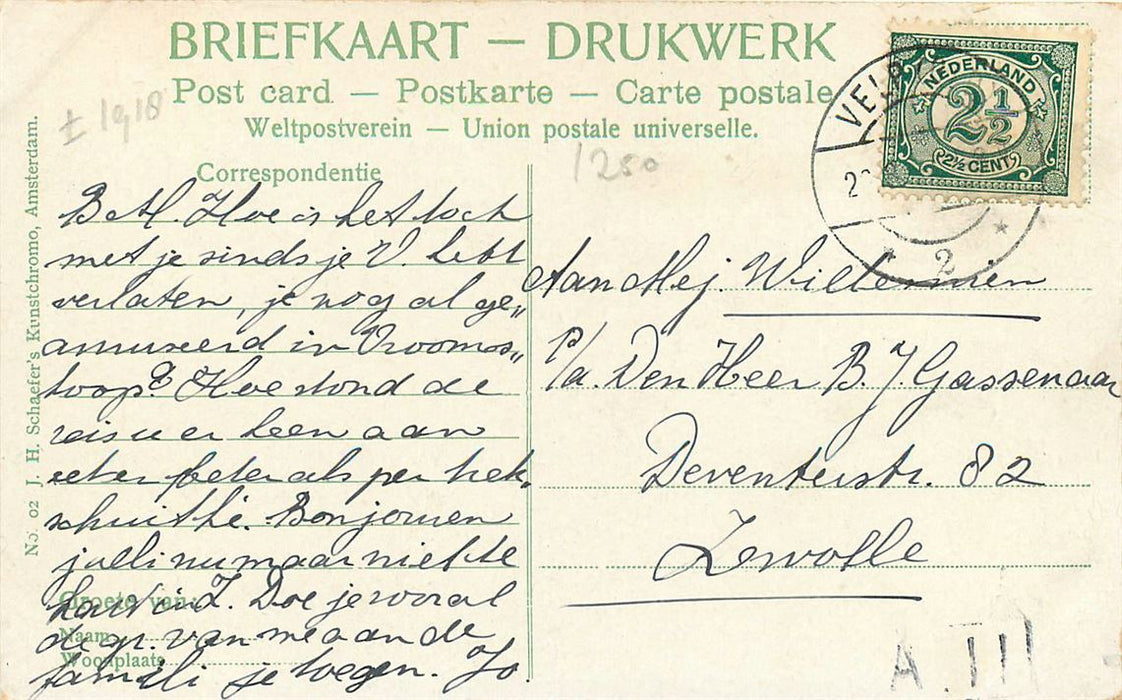 BRIEFKAART — DRUKWERK
Post card — Postkarte — Carte postale
Weltpostverein — Union postale universelle.
± 1918
1250
NEDERLAND
2½
2½ CENT
VEL
2
2
No. 02 J. H. Schaefer's Kunstchromo, Amsterdam.
Correspondentie
B. M. Hoe is het toch
met je sinds je V. hebt
verlaten, je nog al ge„
amuseerd in Vrooms„
hoop? Hoe stond de
reis u er heen aan
beter als per trek„
schuit hè. Bonjouren
julli nu maar niet te
hard in Z. Doe je vooral
de gr. van me aan de
famili je toegen. Jo.
Groete van:
Naam
Woonplaats
Aan Mej. Willemien
P/a. Den Heer B. J. Gassenaar
Deventerstr. 82
Zwolle
A III